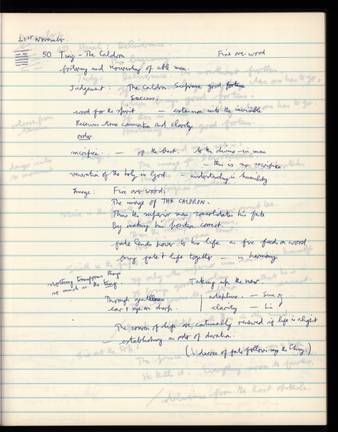 50 Ting - The Caldron Fire over wood
fostering and nourishing of able men.
Judgment: The Caldron Supreme good fortune
Success.
food for the spirit - extension into the invisible
Receives true and clarity
order
sacrifice - of the best to the divine in men
- this is no sacrifice
veneration of the holy is God. - understanding in humility
Image: Fire over wood:
The image of THE CALDRON.
Thus the superior man consolidates his fate
By making his position correct.
fate lends power to his life as fire feeds on wood
bring fate & life together - in harmony
nothing transforms things Taking up the new
so much as the ting
Through gentleness adaptive - Sun
ear & eye are sharp. clarity - Li
The power of life is continually renewed if life is alight
- establishing an order of duration